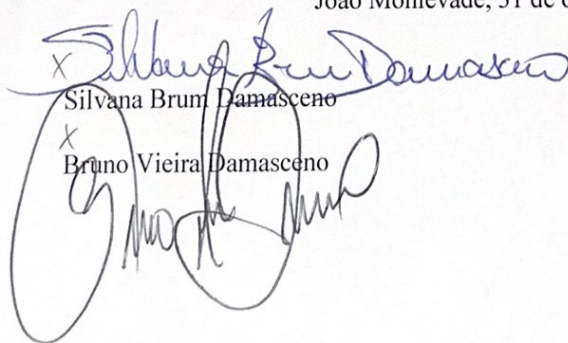 João Monlevade, 31 de
x Silvana Brum Damasceno
Silvana Brum Damasceno
x
Bruno Vieira Damasceno